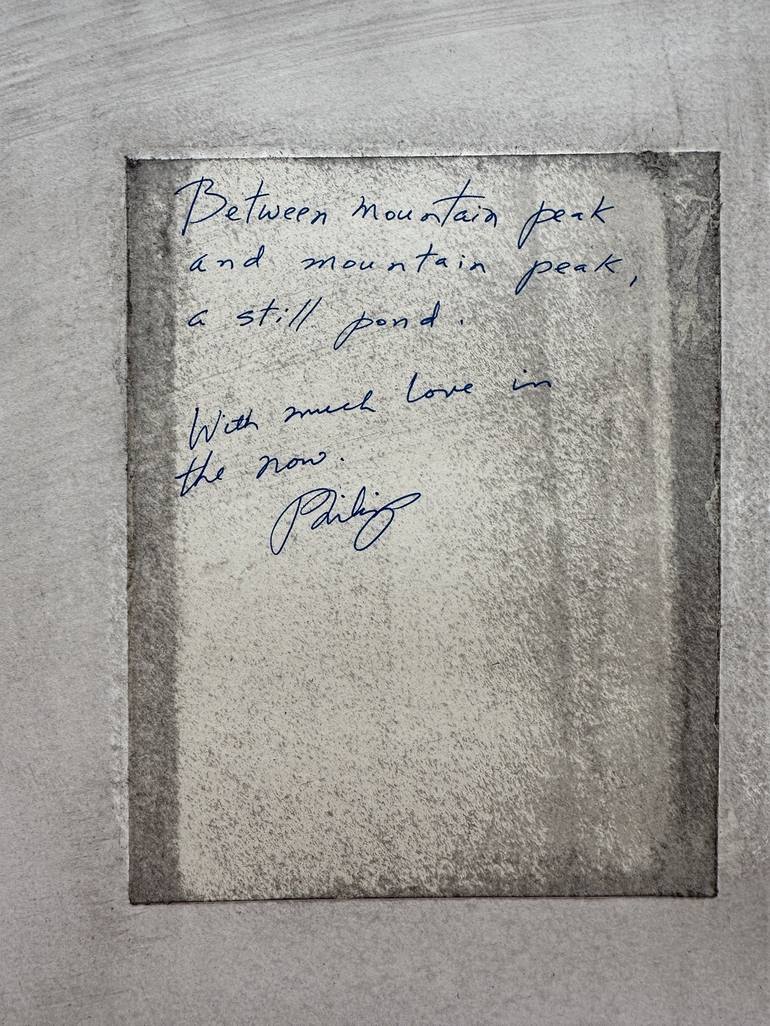 Between mountain peak
and mountain peak,
a still pond.
With much love in
the now.
Philip